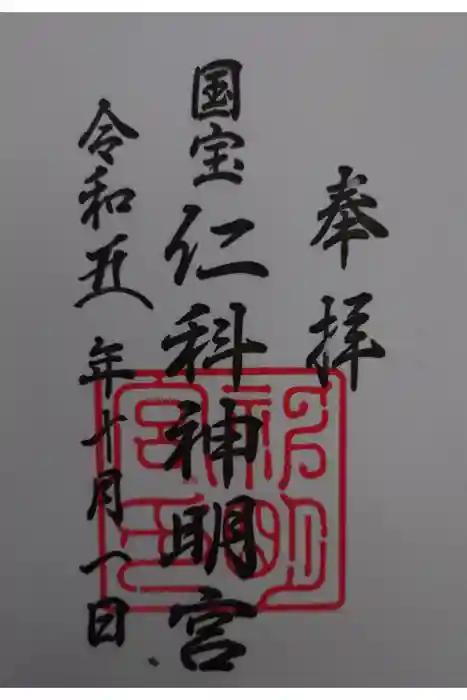 奉拝
国宝 仁科神明宮
令和五年十月一日
神明宮印